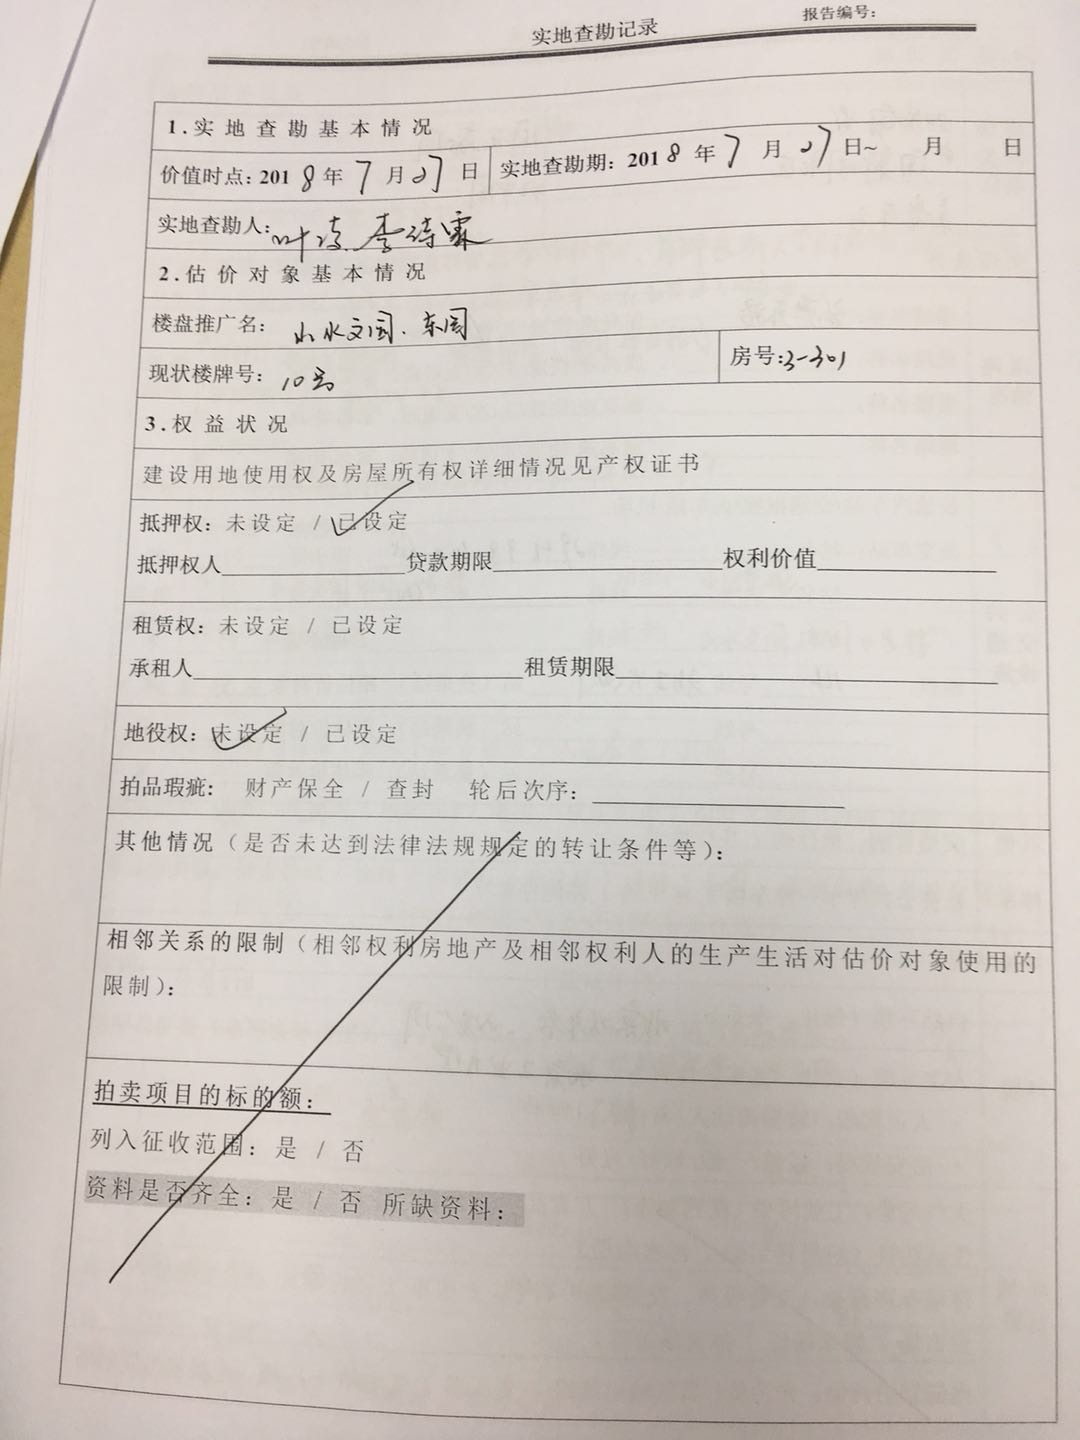 报告编号：
实地查勘记录
1.实地查勘基本情况
价值时点：2018年7月27日 实地查勘期：2018年7月27日~ 月 日
实地查勘人：叶凌 李诗霖
2.估价对象基本情况
楼盘推广名：山水文园·东园
现状楼牌号：10号 房号：3-301
3.权益状况
建设用地使用权及房屋所有权详细情况见产权证书
抵押权：未设定 / 已设定
抵押权人 贷款期限 权利价值
租赁权：未设定 / 已设定
承租人 租赁期限
地役权：未设定 / 已设定
拍品瑕疵： 财产保全 / 查封 轮后次序：
其他情况（是否未达到法律法规规定的转让条件等）：
相邻关系的限制（相邻权利房地产及相邻权利人的生产生活对估价对象使用的
限制）：
拍卖项目的标的额：
列入征收范围：是 / 否
资料是否齐全：是 / 否 所缺资料：